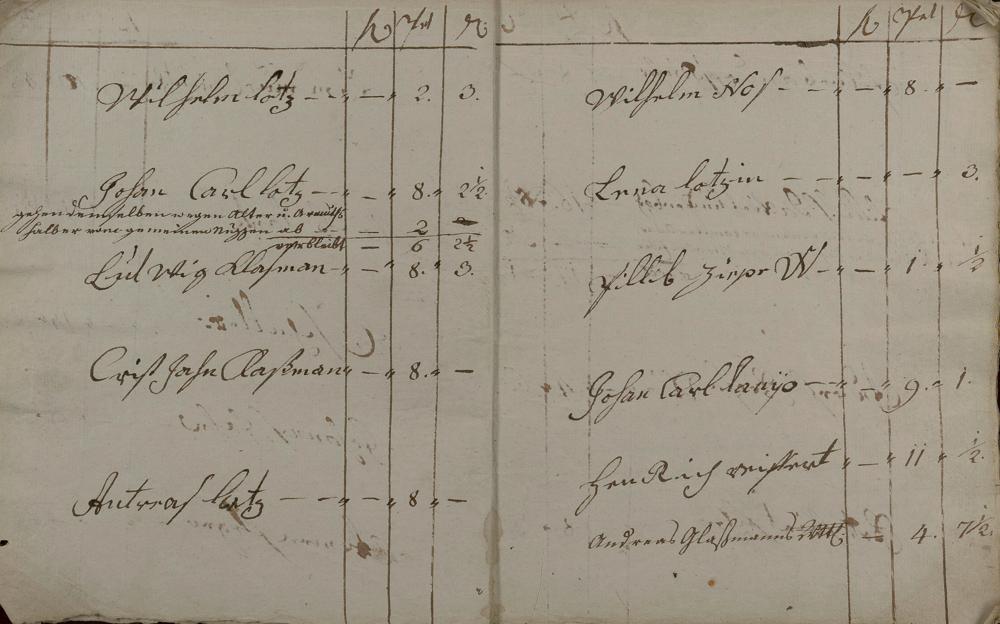 Wilhelm lotz — — „ — „ 2. 3.
Johan Carl lotz — — „ — „ 8. „ 2½.
gehen demselben wegen Alter u. Armuths
halber vom gemeinen Nutzen ab — 2 —
verbleibt — 6 2½
Lud Wig Klasman — „ — „ 8. „ 3.
Crist Jahn Klaßman „ — „ 8. „ —
Antreas lotz — — — „ — „ 8 „ —
Wilhelm Nos — — „ — „ 8. „ —
Lena lotzin — — „ — „ — „ 3.
Fillib W — „ — „ 1. „ ½
Johan Carl — „ — „ 9. „ 1.
HenRich „ — „ 11 „ ½.
Andreas Glaßmanns — 4. 7½.